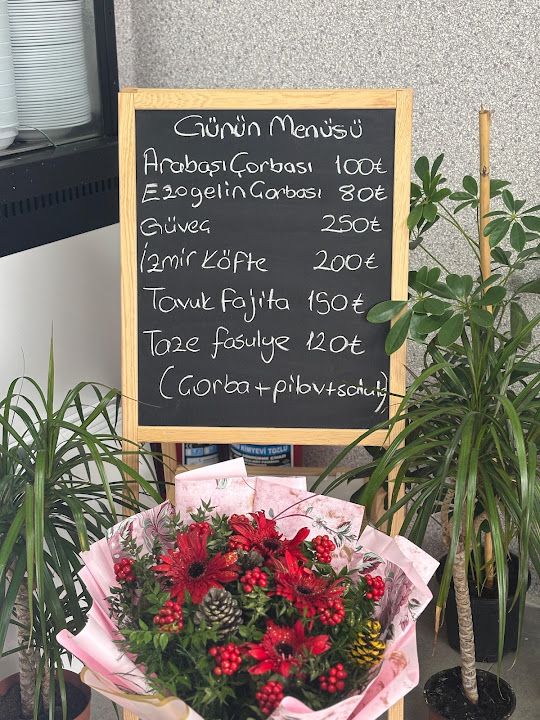 Günün Menüsü
Arabaşı Çorbası 100₺
Ezogelin Çorbası 80₺
Güveç 250₺
İzmir Köfte 200₺
Tavuk Fajita 150₺
Taze fasulye 120₺
(Çorba+pilav+salata)
KİMYEVİ TOZLU